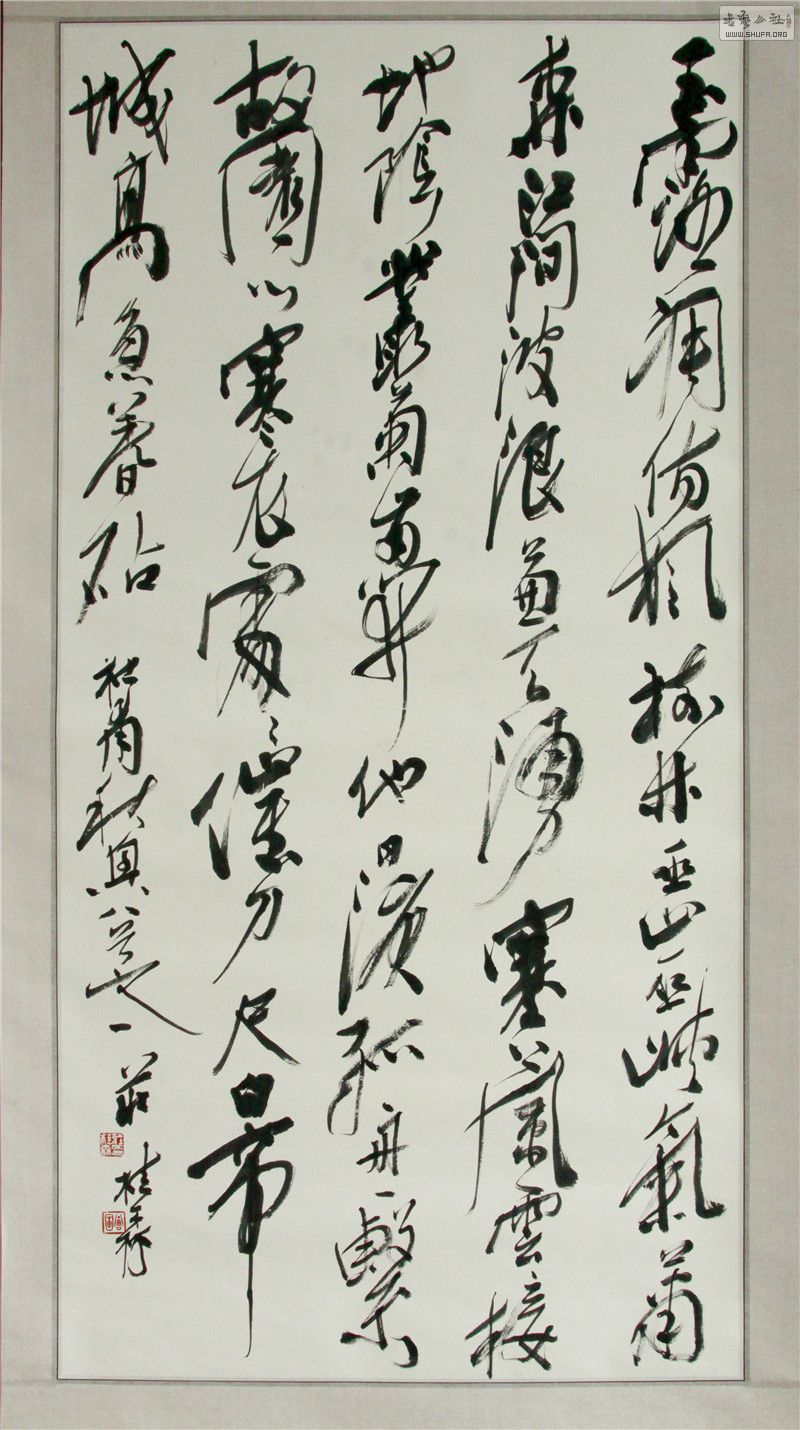 玉露凋傷楓樹林巫山巫峽氣蕭
森江間波浪兼天湧塞上風雲接
地陰叢菊兩開他日淚孤舟一繫
故園心寒衣處處催刀尺白帝
城高急暮砧 杜甫秋興八首之一 莊桂
書藝公社
WWW.SHUFA.ORG